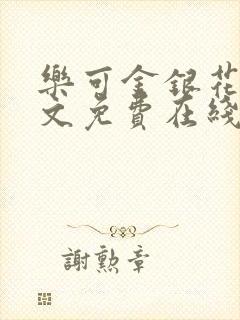 樂可金銀花
文免費在綫
謝勲章